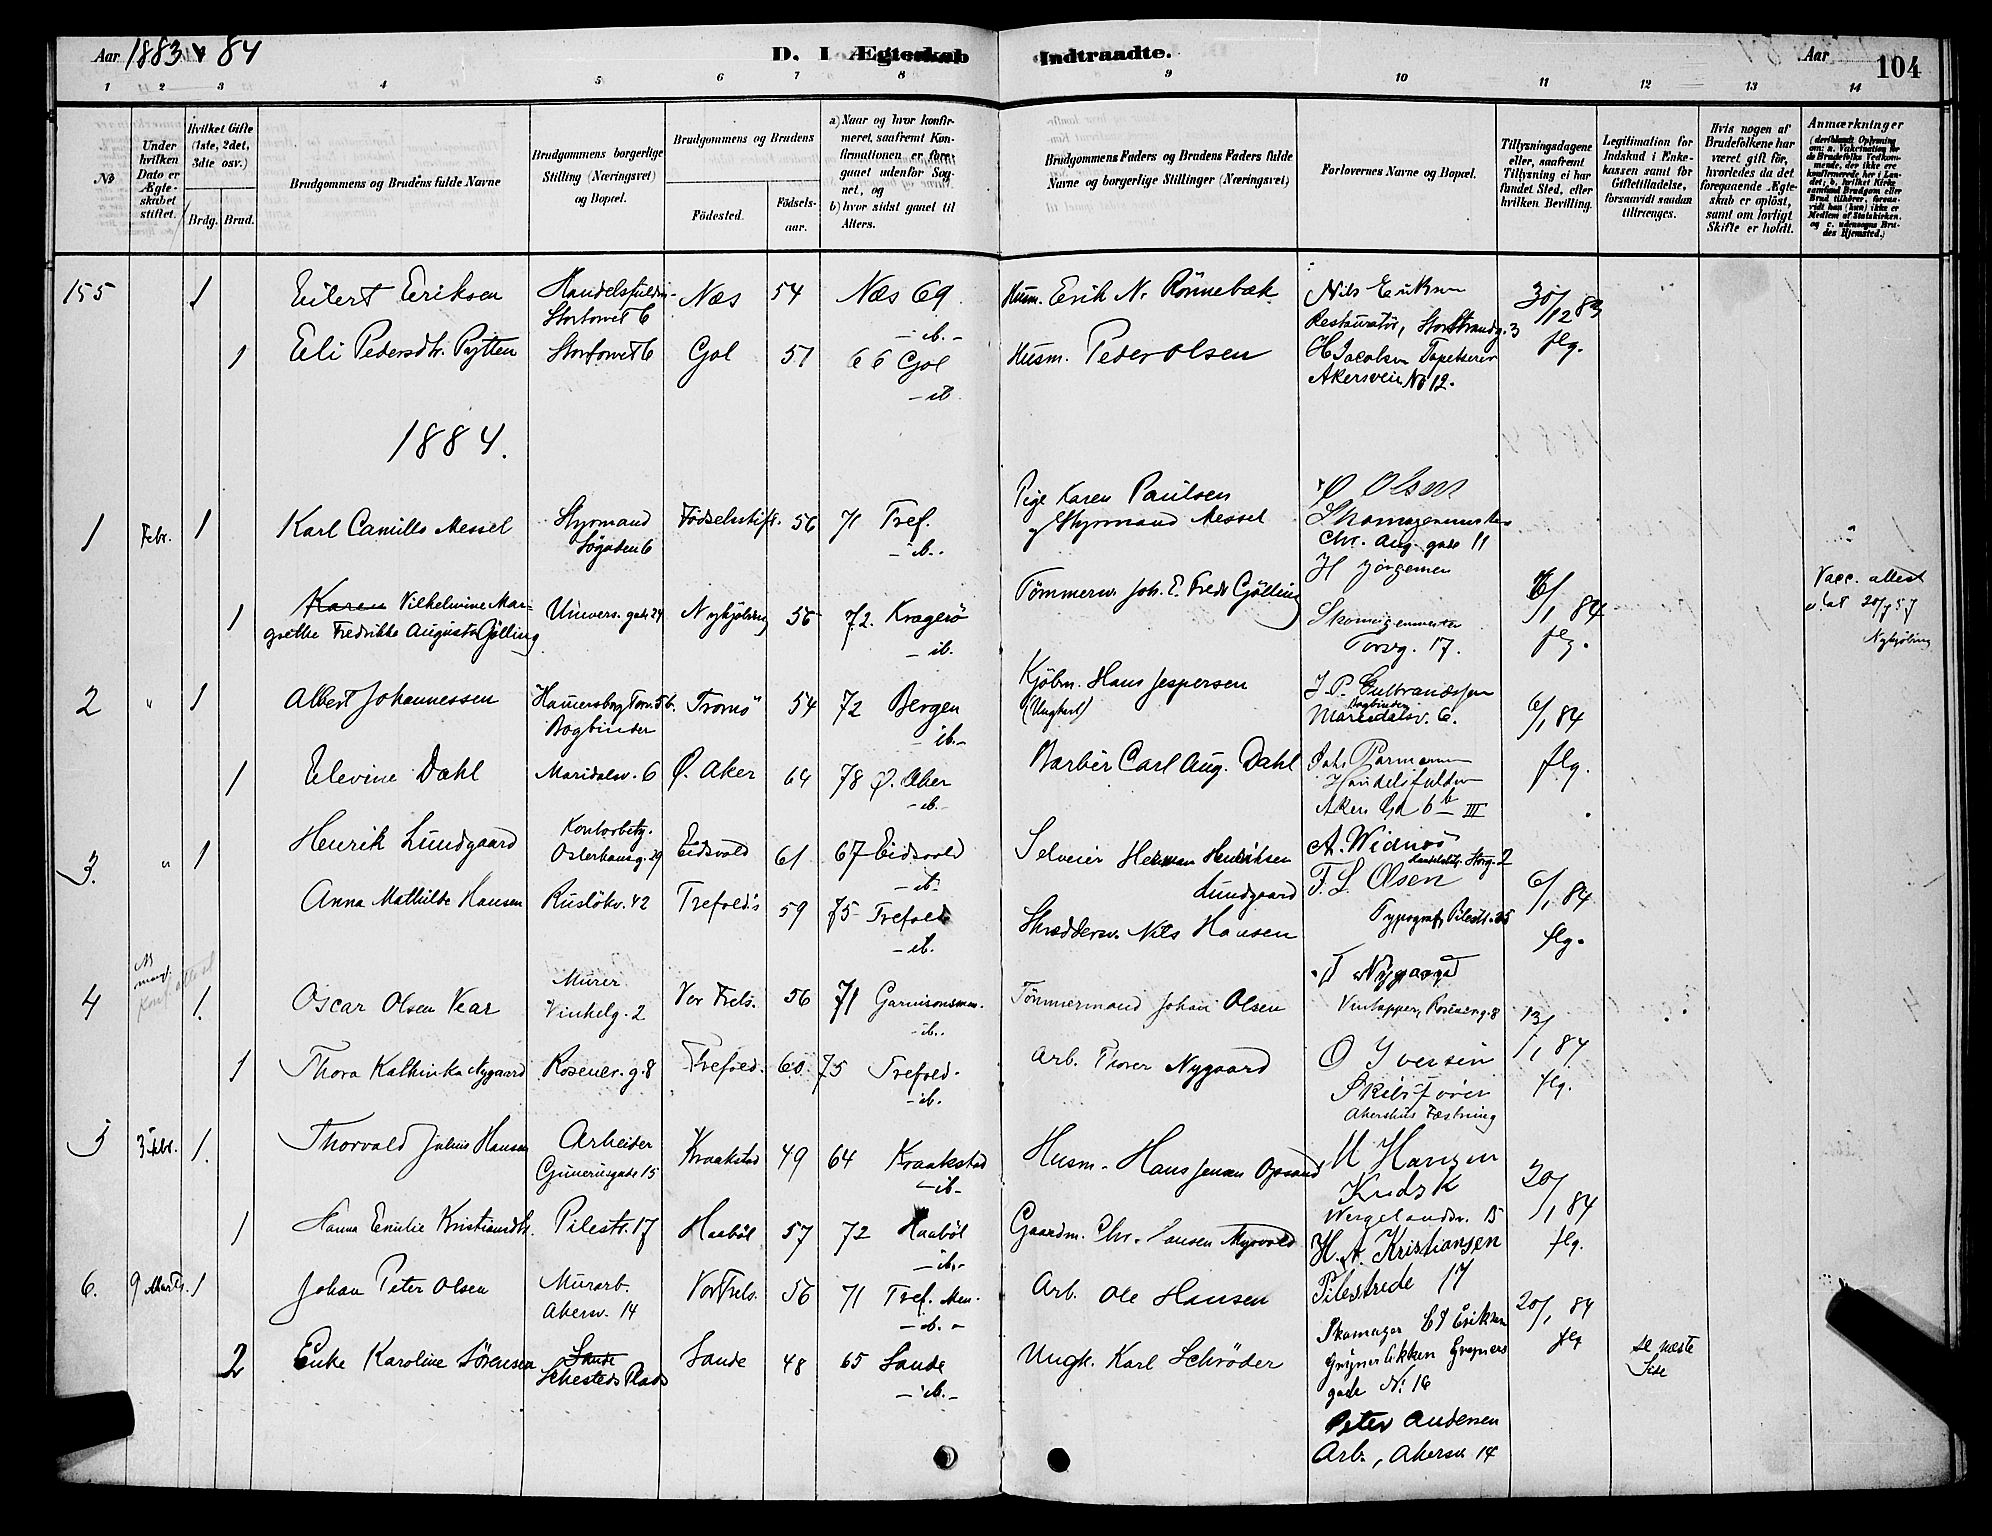 Aar 1883 & 84
D. I Ægteskab Indtraadte.
Aar 104
1 2 3 4 5 6 7 8 9 10 11 12 13 14
№
Under hvilken Dato er Ægteskabet stiftet.
Hvilket Gifte (1ste, 2det, 3dte osv.)
Brdg. Brud.
Brudgommens og Brudens fulde Navne
Brudgommens borgerlige Stilling (Næringsvei) og Bopæl.
Brudgommens og Brudens
Fødested.
Fødselsaar.
a) Naar og hvor konfirmeret, saafremt Konfirmationen er foregaaet udenfor Sognet, og
b) hvor sidst gaaet til Alters.
Brudgommens Faders og Brudens Faders fulde Navne og borgerlige Stillinger (Næringsvei)
Forlovernes Navne og Bopæl.
Tillysningsdagene eller, saafremt Tillysning ei har fundet Sted, efter hvilken Bevilling.
Legitimation for Indskud i Enkekassen samt for Giftetilladelse, forsaavidt saadan tiltrænges.
Hvis nogen af Brudefolkene har været gift før, hvorledes da det foregaaende Ægteskab er opløst, samt om lovligt Skifte er holdt.
Anmærkninger
155 1 Eilert Eriksen Handelsfuldm. Næs 54 Næs 69 Husm. Erik N. Rönnebæk Nils Eriksen 30/12 83
Stortorvet 6 -ib.- Restauratör, Stor Strandg. 3
1 Eli Pedersdtr. Pytten Stortorvet 6 Gol 51 66 Gol Husm. Peder Olsen H Jacobsen Tapetserer flg.
-ib. Akersvein No 12.
1884.
1 Febr. 1 Karl Camillo Messel Styrmand Födselsstift. 56 71 Tref. Pige Karen Paulsen Ø Olsen
Søgaden 6 -ib.- og Styrmand Messel Skomagermester
Chr. Aug. gade 11
H Jörgensen
1 Karen Vilhelmine Mar- Univers. gade 24 Nykjöbing 56 72. Kragerö Tömmerm. Joh. E. Fredr Gjölling Skomagermester 6/1 84 Vacc. attest
grethe Fredrikke Augusta Gjölling -ib. Torvg. 17. flg. Nykjöbing
2 " 1 Albert Johannessen Hammersborg Torv 56. Tromsö 54 72 Bergen Kjöbm. Hans Jespersen J. P. Gulbrandssen 6/1 84
Bogbinder -ib.- (Ungkarl) Bogbinder Maridalsv. 6.
1 Elevine Dahl Maridalsv. 6 Ø. Aker 64 78 Ø. Aker Barbér Carl Aug. Dahl flg.
-ib.- Akers Gd 6b III
3. " 1 Henrik Lundgaard Kontorbetj. Osterhausg. 29 Eidsvold 61 67 Eidsvold Selveier Herman Henriksen A. Widnös
-ib. Lundgaard Storg. 2
Anna Mathilde Hansen Ruslökv. 42 Trefold's 59 75 Trefold Skrædderm. Nils Hansen F. L. Olsen 6/1 84
-ib. Typograf, Pilestr. 35 flg.
4 1. Oscar Olsen Vear Murer Vor Frels. 56 71 Garnisonsmen. Tömmermand Johan Olsen Nygaard
Vinkelg. 2 -ib.- Vintapper, Rosenerg. 8 13/1 84
1 Thora Kathinka Nygaard Rosener. g. 8 Trefold. 60 75 Trefold. Arb. Thorer Nygaard O Iversen
-ib. Skibsförer flg.
Akershus Fæstning
5 3 Febr. 1. Thorvald Julius Hansen Arbeider Kraakstad 49 64 Kraakstad Husm. Hans Jensen M Hansen 20/1 84
Gjunerusgade 15 -ib- Kudsk
Wergelandsv. 15
1 Hanna Emilie Kristiansdtr. Pilestr. 17 Haaböl 57 72 Haaböl Gaardm. Chr. Hansen Myrvold H. A. Kristiansen flg.
-ib.- Pilestrede 17
6. 9 Marts. 1 Johan Peter Olsen Murarb. Vor Frels. 56 71 Tref. Men. Arb. Ole Hansen Skomager Eriksen 20/1 84
Akersv. 14 -ib.- Grünerlökken Grüners gade No 16 flg
2 Enke Karoline Sörensen Sande Sande 48 65 Sande Ungk. Karl Schröder Peter Andersen se næste Side
Sehesteds Plads -ib.- Arb., Akersv 14